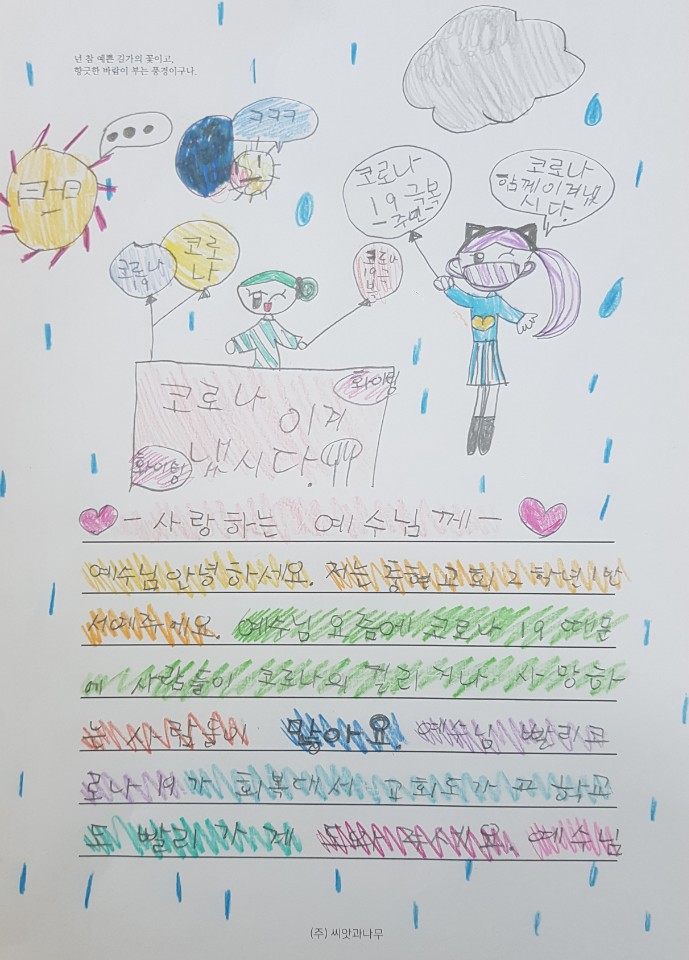 넌 참 예쁜 길가의 꽃이고,
향긋한 바람이 부는 풍경이구나.
ㅋㅋㅋ
코로나
19 극복
코로나
함께이겨냅
시다.
코로나
19
코로
나
코로나
19극
복
코로나
이겨
냅시다.
화이팅
화이팅
-사랑하는 예수님께-
예수님 안녕하세요. 저는 중현교회 2학년 1반
서예주에요. 예수님 요즘에 코로나 19 때문
에 사람들이 코로나의 걸리거나 사망하
는 사람들이 많아요. 예수님 빨리 코
로나 19가 회복대서 교회도가고 학교
도 빨리 가게 도와주세요. 예수님
(주) 씨앗과나무